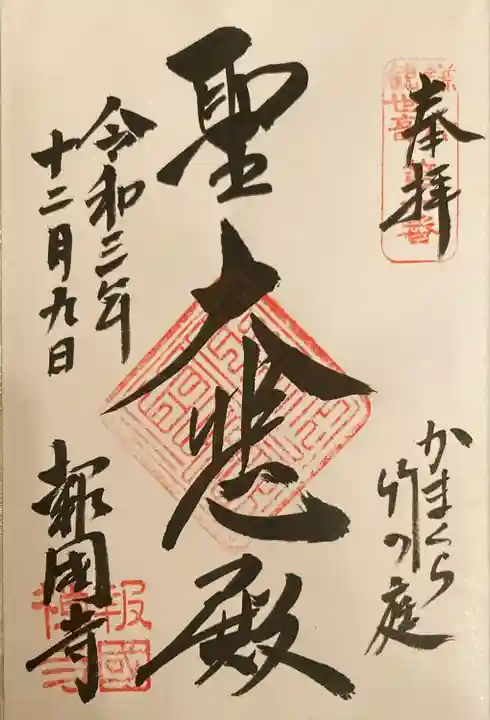 奉拝
かまくら
竹の庭
聖大悲殿
令和三年
十二月九日
報國寺
報國
禅寺